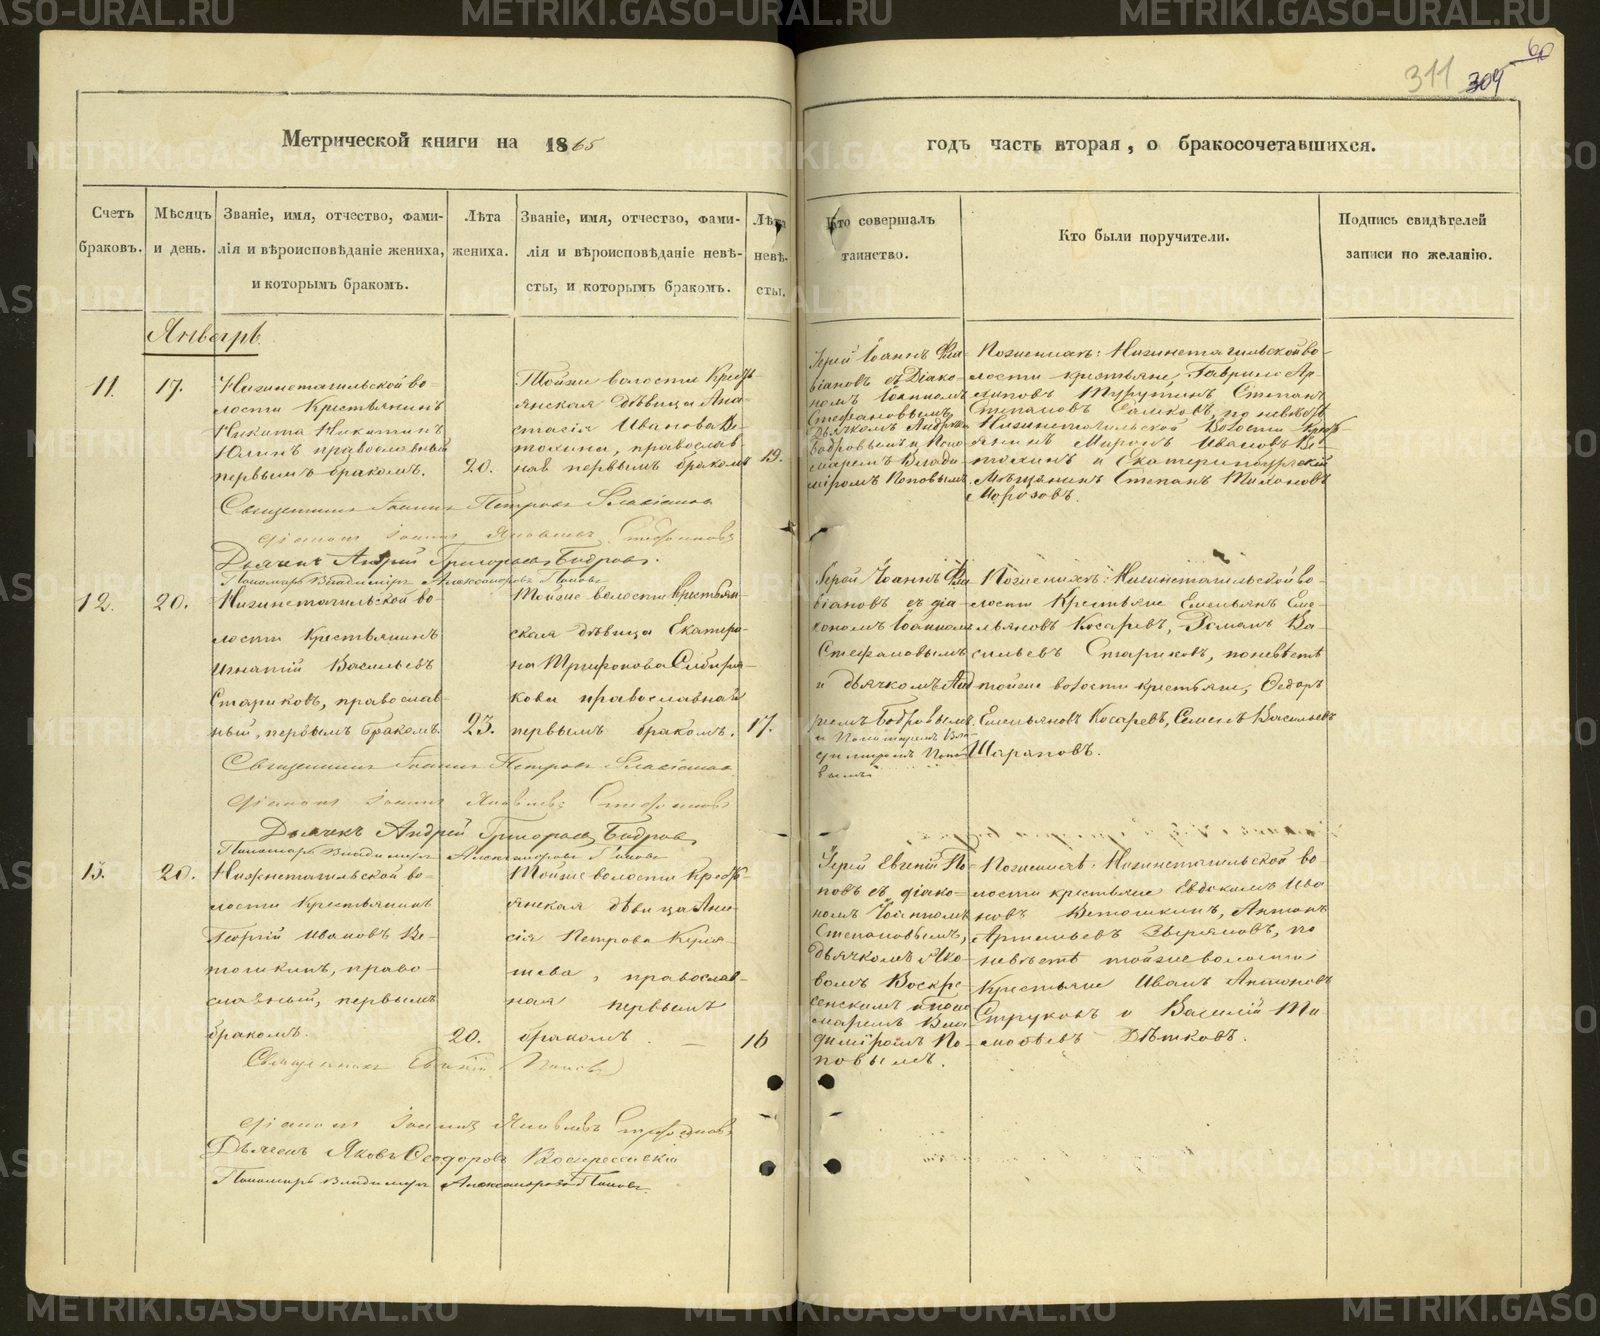 311 309 60
Метрической книги на 1865
годъ часть вторая, о бракосочетавшихся.
Счетъ браковъ.
Мѣсяцъ и день.
Званіе, имя, отчество, фами-
лія и вѣроисповѣданіе жениха,
и которымъ бракомъ.
Лѣта жениха.
Званіе, имя, отчество, фами-
лія и вѣроисповѣданіе невѣ-
сты, и которымъ бракомъ.
Лѣта невѣ-
сты.
Кто совершалъ
таинство.
Кто были поручители.
Подпись свидѣтелей
записи по желанію.
Январь
11. 17.
Нижнетагильской во-
лости Крестьянинъ
Никита Никитинъ
православный
первымъ бракомъ.
20.
Тойже волости Кресть-
янская дѣвица Ана-
стасія Иванова Ве-
тохина, православ-
ная первымъ бракомъ
19.
Іерей Іоаннъ Фла-
віановъ съ Діако-
номъ Іоанномъ
Стефановымъ
Дьячкомъ Андреемъ
Бобровымъ и Поно-
маремъ Влади-
міромъ Поповымъ.
По женихѣ: Нижнетагильской во-
лости крестьяне, Гаврило Ар-
хиповъ Степанъ
Степановъ по невѣстѣ
Нижнетагильской Волости Крес-
янинъ Миронъ Ивановъ Ве-
тохинъ и Екатеринбургскій
Мѣщанинъ Степанъ Тихоновъ
Морозовъ.
Священникъ Іоаннъ Петровъ Флавіановъ
Діаконъ Іоаннъ Яковлевъ Стефановъ
Дьячекъ Андрей Григорьевъ Бобровъ.
Пономарь Владимиръ Александровъ Поповъ
12. 20.
Нижнетагильской во-
лости Крестьянинъ
Игнатій Васильевъ
Стариковъ, православ-
ный, первымъ бракомъ.
23.
Тойже волости крестьян-
ская дѣвица Екатери-
на Трифонова Сибиря-
кова православная
первымъ бракомъ.
17.
Іерей Іоаннъ Фла-
віановъ съ діа-
кономъ Іоанномъ
Стефановымъ
и дьячкомъ Анд
реемъ Бобровымъ
и Пономаремъ Вла-
димиромъ Попо-
вымъ
По женихѣ: Нижнетагильской во-
лости Крестьяне Емельянъ Еме-
льяновъ Косаревъ, Романъ Ва-
сильевъ Стариковъ, по невѣстѣ
тойже волости крестьяне, Федоръ
Емельяновъ Косаревъ, Семенъ Васильевъ
Шараповъ.
Священникъ Іоаннъ Петровъ Флавіановъ
Діаконъ Іоаннъ Яковлевъ Стефановъ
Дьячекъ Андрей Григорьевъ Бобровъ
Пономарь Владимиръ Александровъ Поповъ
13. 20.
Нижнетагильской во-
лости Крестьянинъ
Георгій Ивановъ Ве-
тошкинъ, право-
славный, первымъ
бракомъ.
20.
Тойже волости Кресть-
янская дѣвица Ани-
сія Петрова
православ-
ная первымъ
бракомъ.
16
Іерей Евгеній По-
повъ съ діако-
номъ Іоанномъ
Степановымъ,
дьячкомъ Яко-
вомъ Воскре-
сенскимъ и Поно
маремъ Вла-
диміромъ По-
повымъ.
По женихѣ: Нижнетагильской во-
лости крестьяне Евдокимъ Ива
новъ Ветошкинъ, Антонъ
Артемьевъ Зыряновъ, по
невѣстѣ тойже волости
Крестьяне Иванъ Антоновъ
Струковъ и Василій Ти
мофѣевъ Дѣтковъ.
Священникъ Евгеній Поповъ
Діаконъ Іоаннъ Яковлевъ Стефановъ
Дьячекъ Яковъ Феодоровъ Воскресенскій
Пономарь Владимиръ Александровъ Поповъ.
METRIKI.GASO-URAL.RU